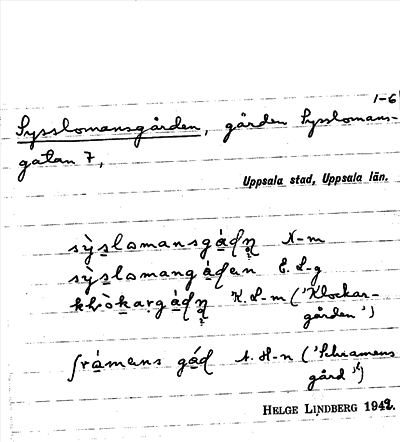 1-6
Sysslomansgården, gården Sysslomans-
gatan 7,
Uppsala stad, Uppsala län.
sỳslomansgȧ́dn̥ N-m
sỳslomangȧdan E. L-g
klȯ̀kargȧ̀dn̥ K. L-m ('Klockar-
gården')
ʃrámens gȧ́d A. H-n ('Schramens
gård')
HELGE LINDBERG 1942.